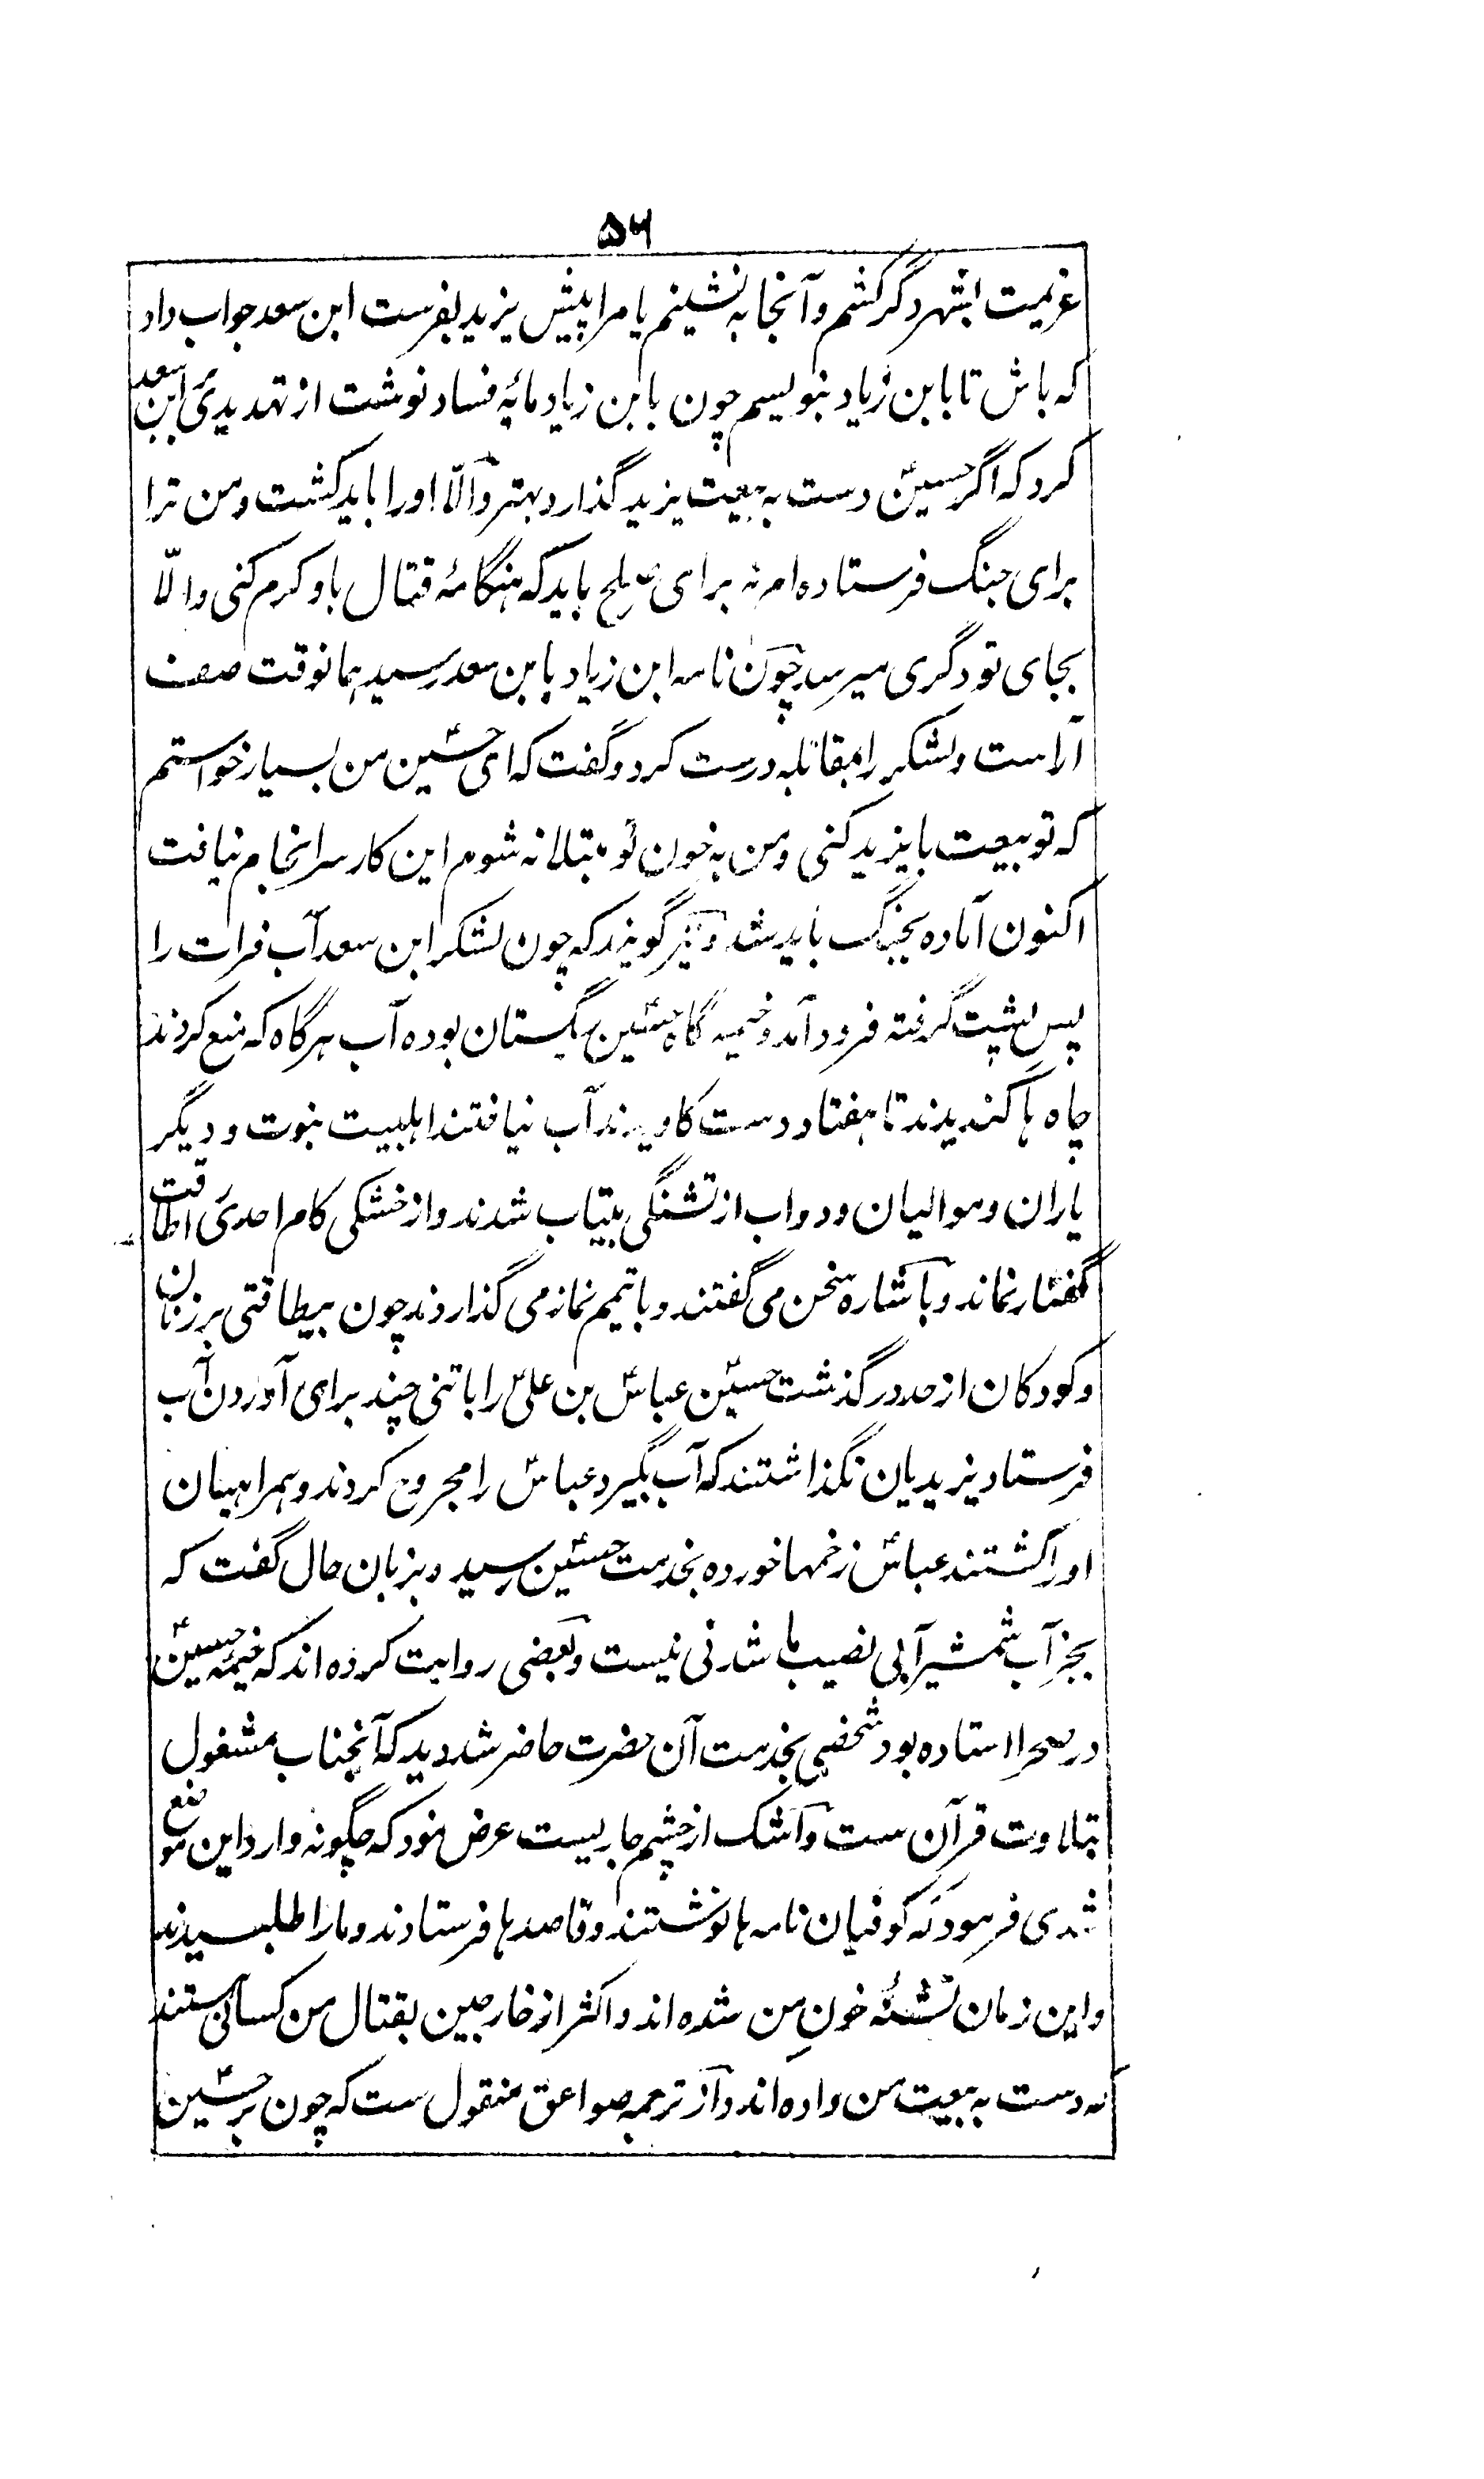 ۵۶
عزیمت بشهر دگر کشم و آنجا به نشینم یا مرا پیش یزید بفرست ابن سعد جواب داد
که باش تا بابن زیاد بنویسم چون بابن زیاد مائه فساد نوشت از تهدیدئ ابن سعد
کرد که اگر حسینؑ دست به بیعت یزید گذارد بهتر والّا او را باید کشت و من ترا
برای جنگ فرستاده ام نه برای صلح باید که هنگامۀ قتال باو گرم کنی والّا
بجای تو دگری میرسد چون نامه ابن زیاد بابن سعد رسید همانوقت صف
آراست و لشکر را بمقاتله درست کرد و گفت که ای حسینؑ من بسیار خواستم
که تو بیعت با یزید کنی و من به خون تو مبتلا نه شوم این کار سرانجام نیافت
اکنون آماده بجنگ باید شد و نیز گویند که چون لشکر ابن سعد آب فرات را
پس پشت گرفته فرود آمد و خیمه گاه حسینؑ ریگستان بوده آب هرگاه که منع کردند
چاه ها کندیدند تا هفتاد دست کاویدند آب نیافتند اهلبیت نبوت و دیگر
یاران و موالیان و دواب از تشنگی بیتاب شدند و از خشکی کام احدی را طاقت
گفتار نماند و باشاره سخن می گفتند و با تیمم نماز می گذاردند چون بیطاقتی بر زنان
و کودکان از حد در گذشت حسینؑ عباسؑ بن علیؑ را با تنی چند برای آوردن آب
فرستاد یزیدیان نگذاشتند که آب بگیرد عباسؑ را مجروح کردند و همراهیان
او را کشتند عباسؑ زخمها خورده بخدمت حسینؑ رسید و بزبان حال گفت که
بجز آب شمشیر آبی نصیب ما شدنی نیست و بعضی روایت کرده اند که خیمۀ حسینؑ
در صحرا استاده بود شخصی بخدمت آن حضرت حاضر شد دید که آنجناب مشغول
بتلاوت قرآن ست و اشک از چشم جاریست عرض نمود که چگونه وارد این موضع
شدی فرمود که کوفیان نامه ها نوشتند و قاصد ها فرستادند و ما را طلبیدند
و این زمان تشنۀ خونِ من شده اند و اکثر از خارجین بقتال من کسانی ستند
که دست به بیعت من داده اند و از ترجمه صواعق منقول ست که چون بر حسینؑ